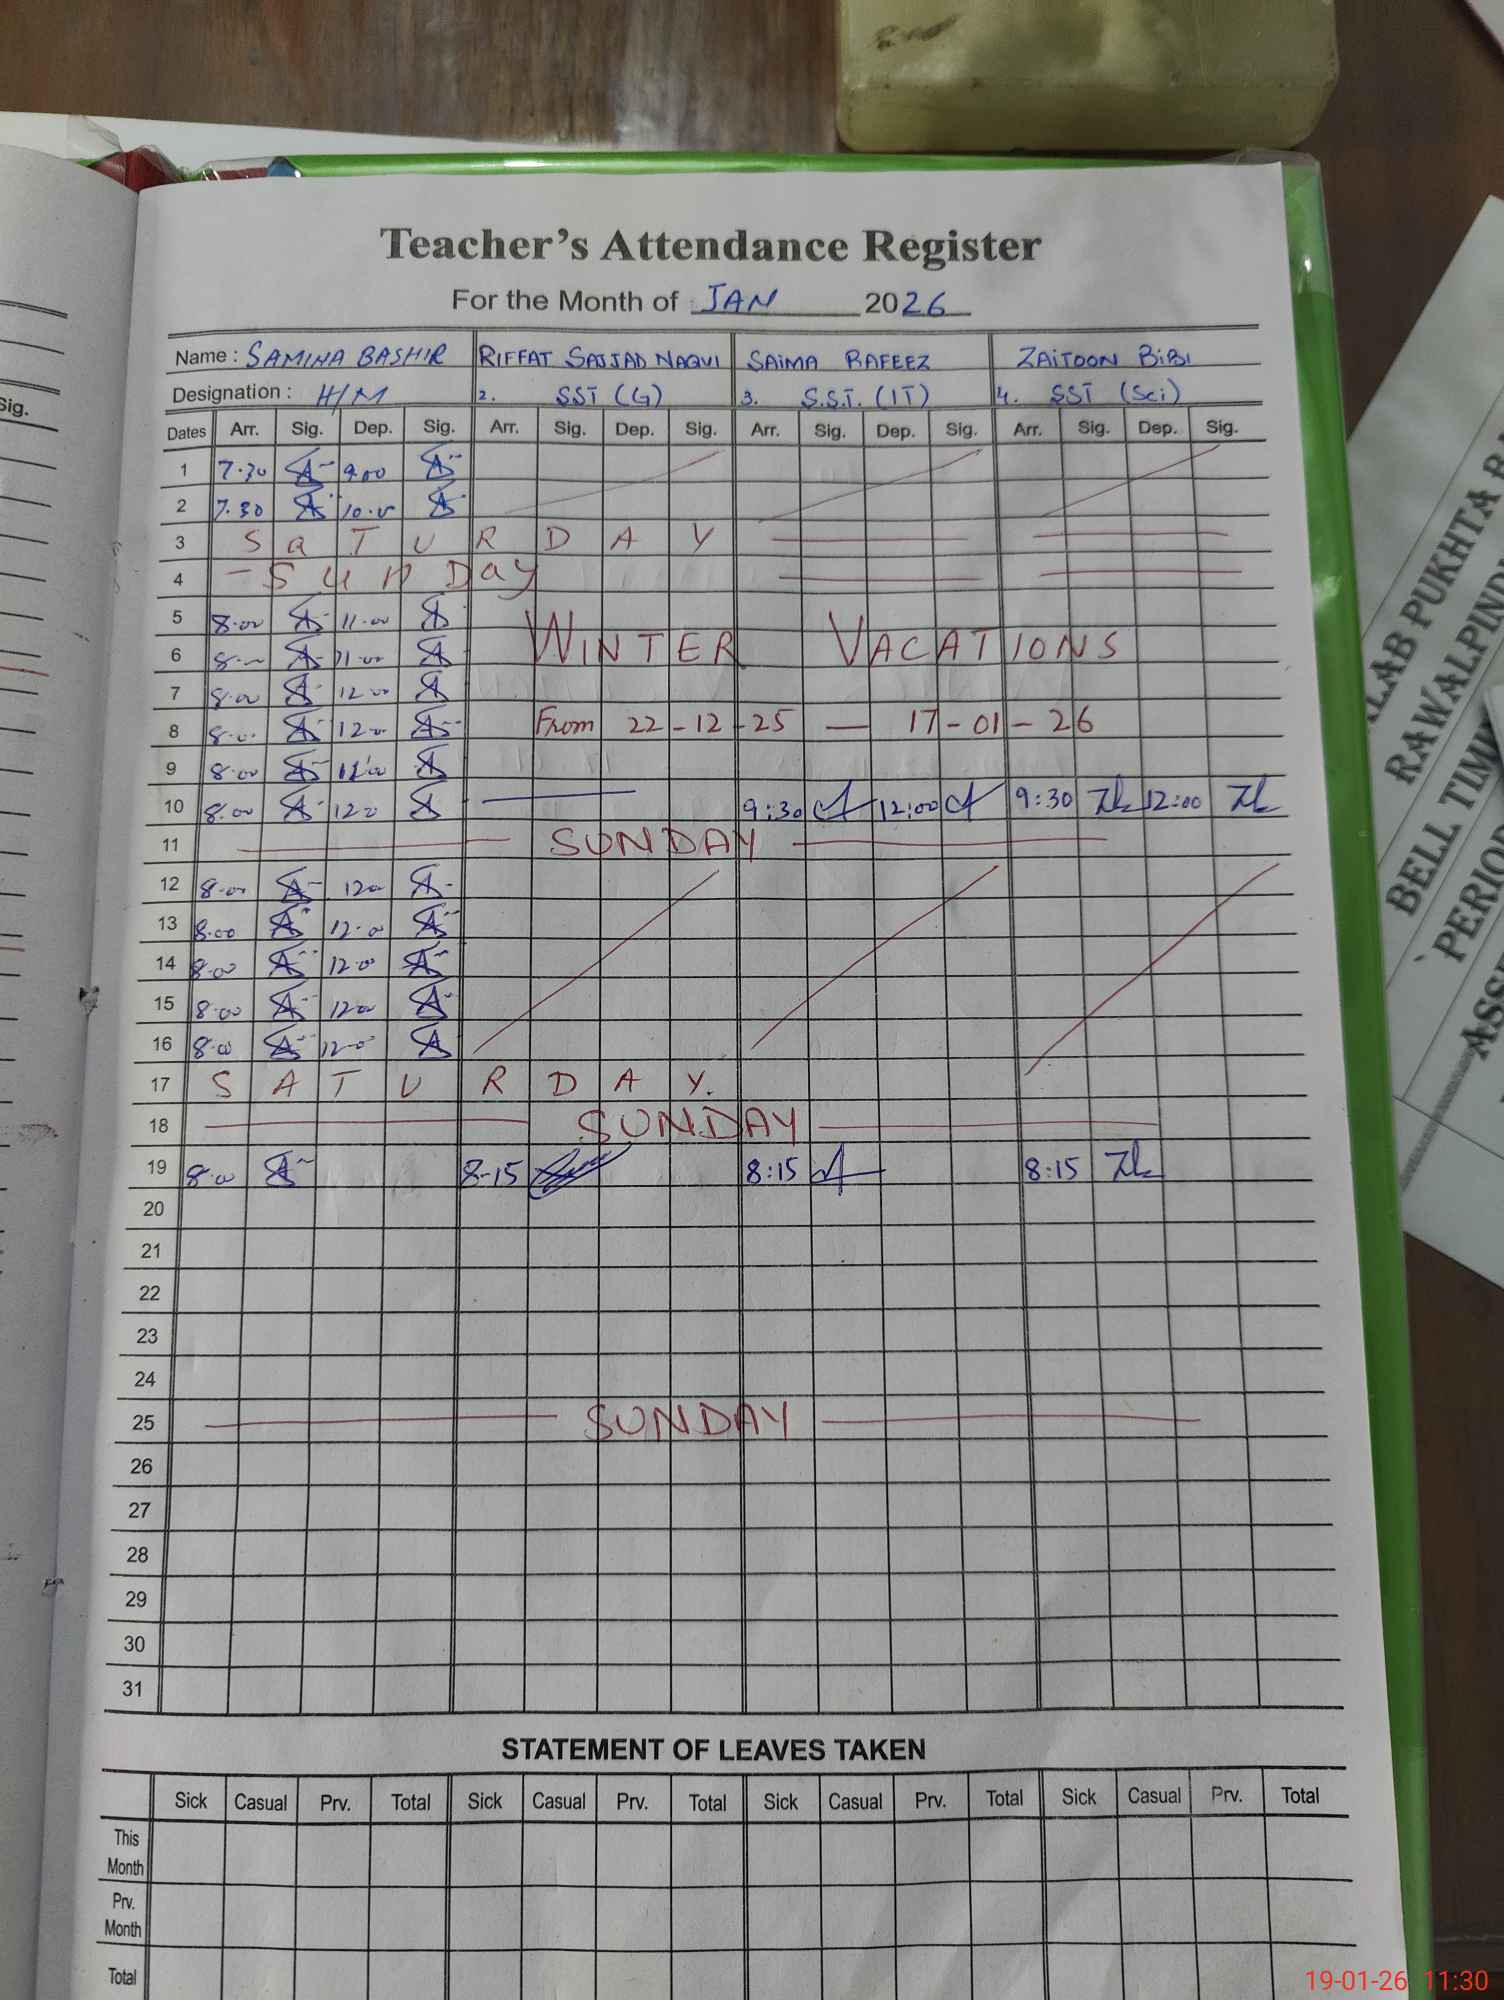 Sig.
Teacher's Attendance Register
For the Month of JAN 2026
Name : SAMINA BASHIR RIFFAT SAJJAD NAQVI SAIMA RAFEEZ ZAITOON BiBI
Designation : H/M 2. SST (G) 3. S.S.T. (IT) 4. SST (Sci)
Dates Arr. Sig. Dep. Sig. Arr. Sig. Dep. Sig. Arr. Sig. Dep. Sig. Arr. Sig. Dep. Sig.
1 7.30 9.00
2 7.30 10.0
3 SaTURDAY
4 - SunDay
5 8.00 11.00
6 8.00 11.00 WINTER VACATIONS
7 8.00 12.00
8 8.00 12.0 From 22-12-25 — 17-01-26
9 8.00 11.00
10 8.00 12.0 9:30 12:00 9:30 12:00
11 SUNDAY
12 8.00 12.0
13 8.00 12.00
14 8.00 12.0
15 8.00 12.00
16 8.00 12.0
17 SATURDAY.
18 SUNDAY
19 8.00 8-15 8:15 8:15
20
21
22
23
24
25 SUNDAY
26
27
28
29
30
31
STATEMENT OF LEAVES TAKEN
Sick Casual Prv. Total Sick Casual Prv. Total Sick Casual Prv. Total Sick Casual Prv. Total
This
Month
Prv.
Month
Total
PUKHTA
RAWALPINDI
BELL TIM
PERIOD
ASSE
19-01-26 11:30